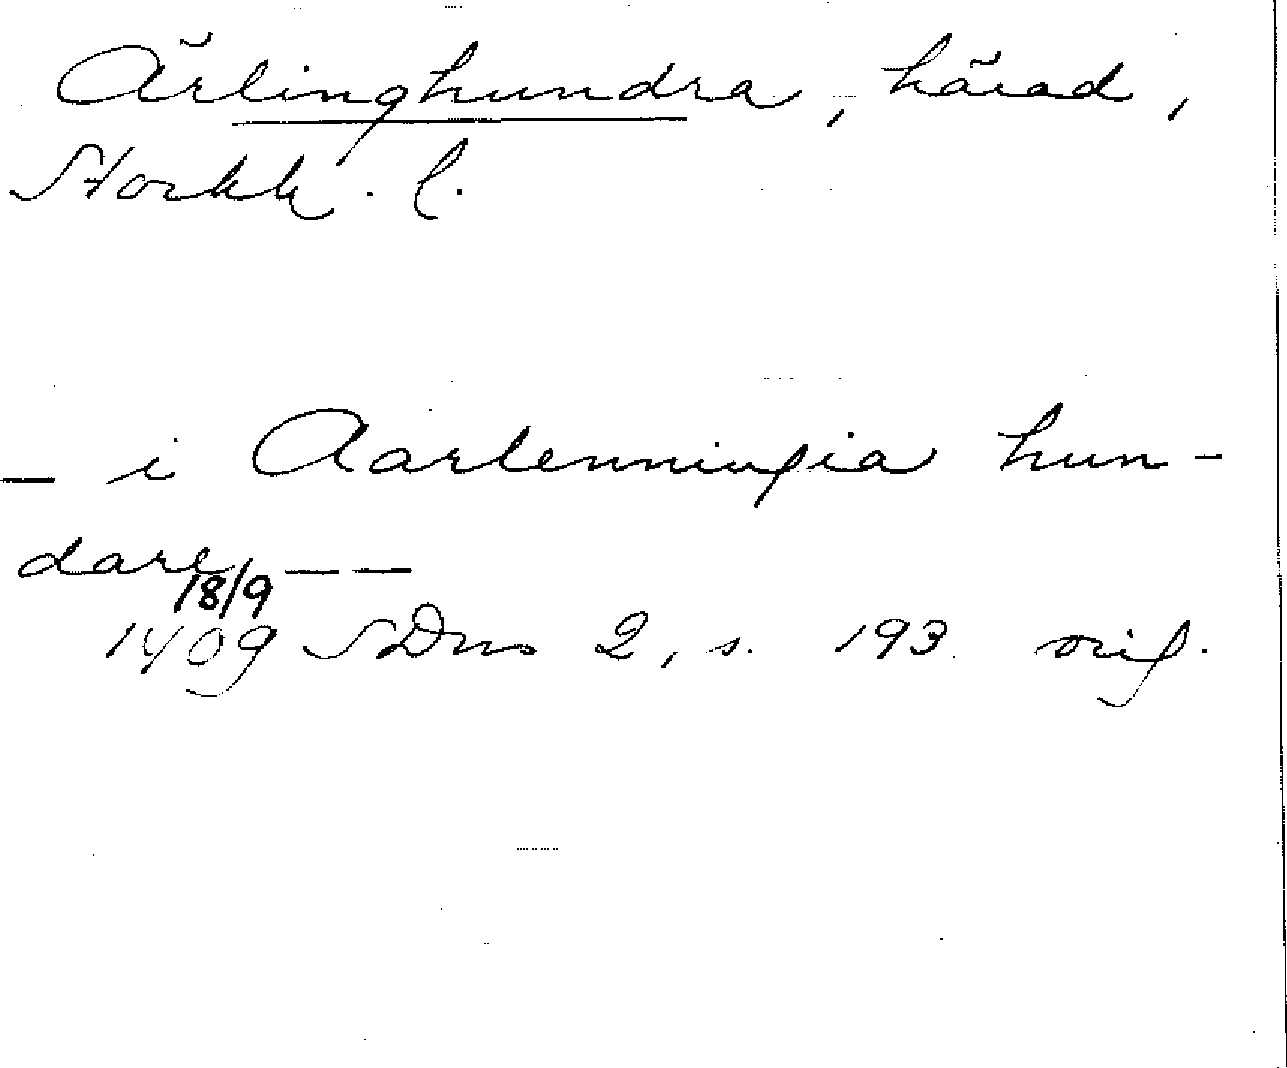 Ärlinghundra, härad,
Stockh. l.
– i Aarlenningia hun-
dare – –
18/9
1409 SDns 2, s. 193 orig.